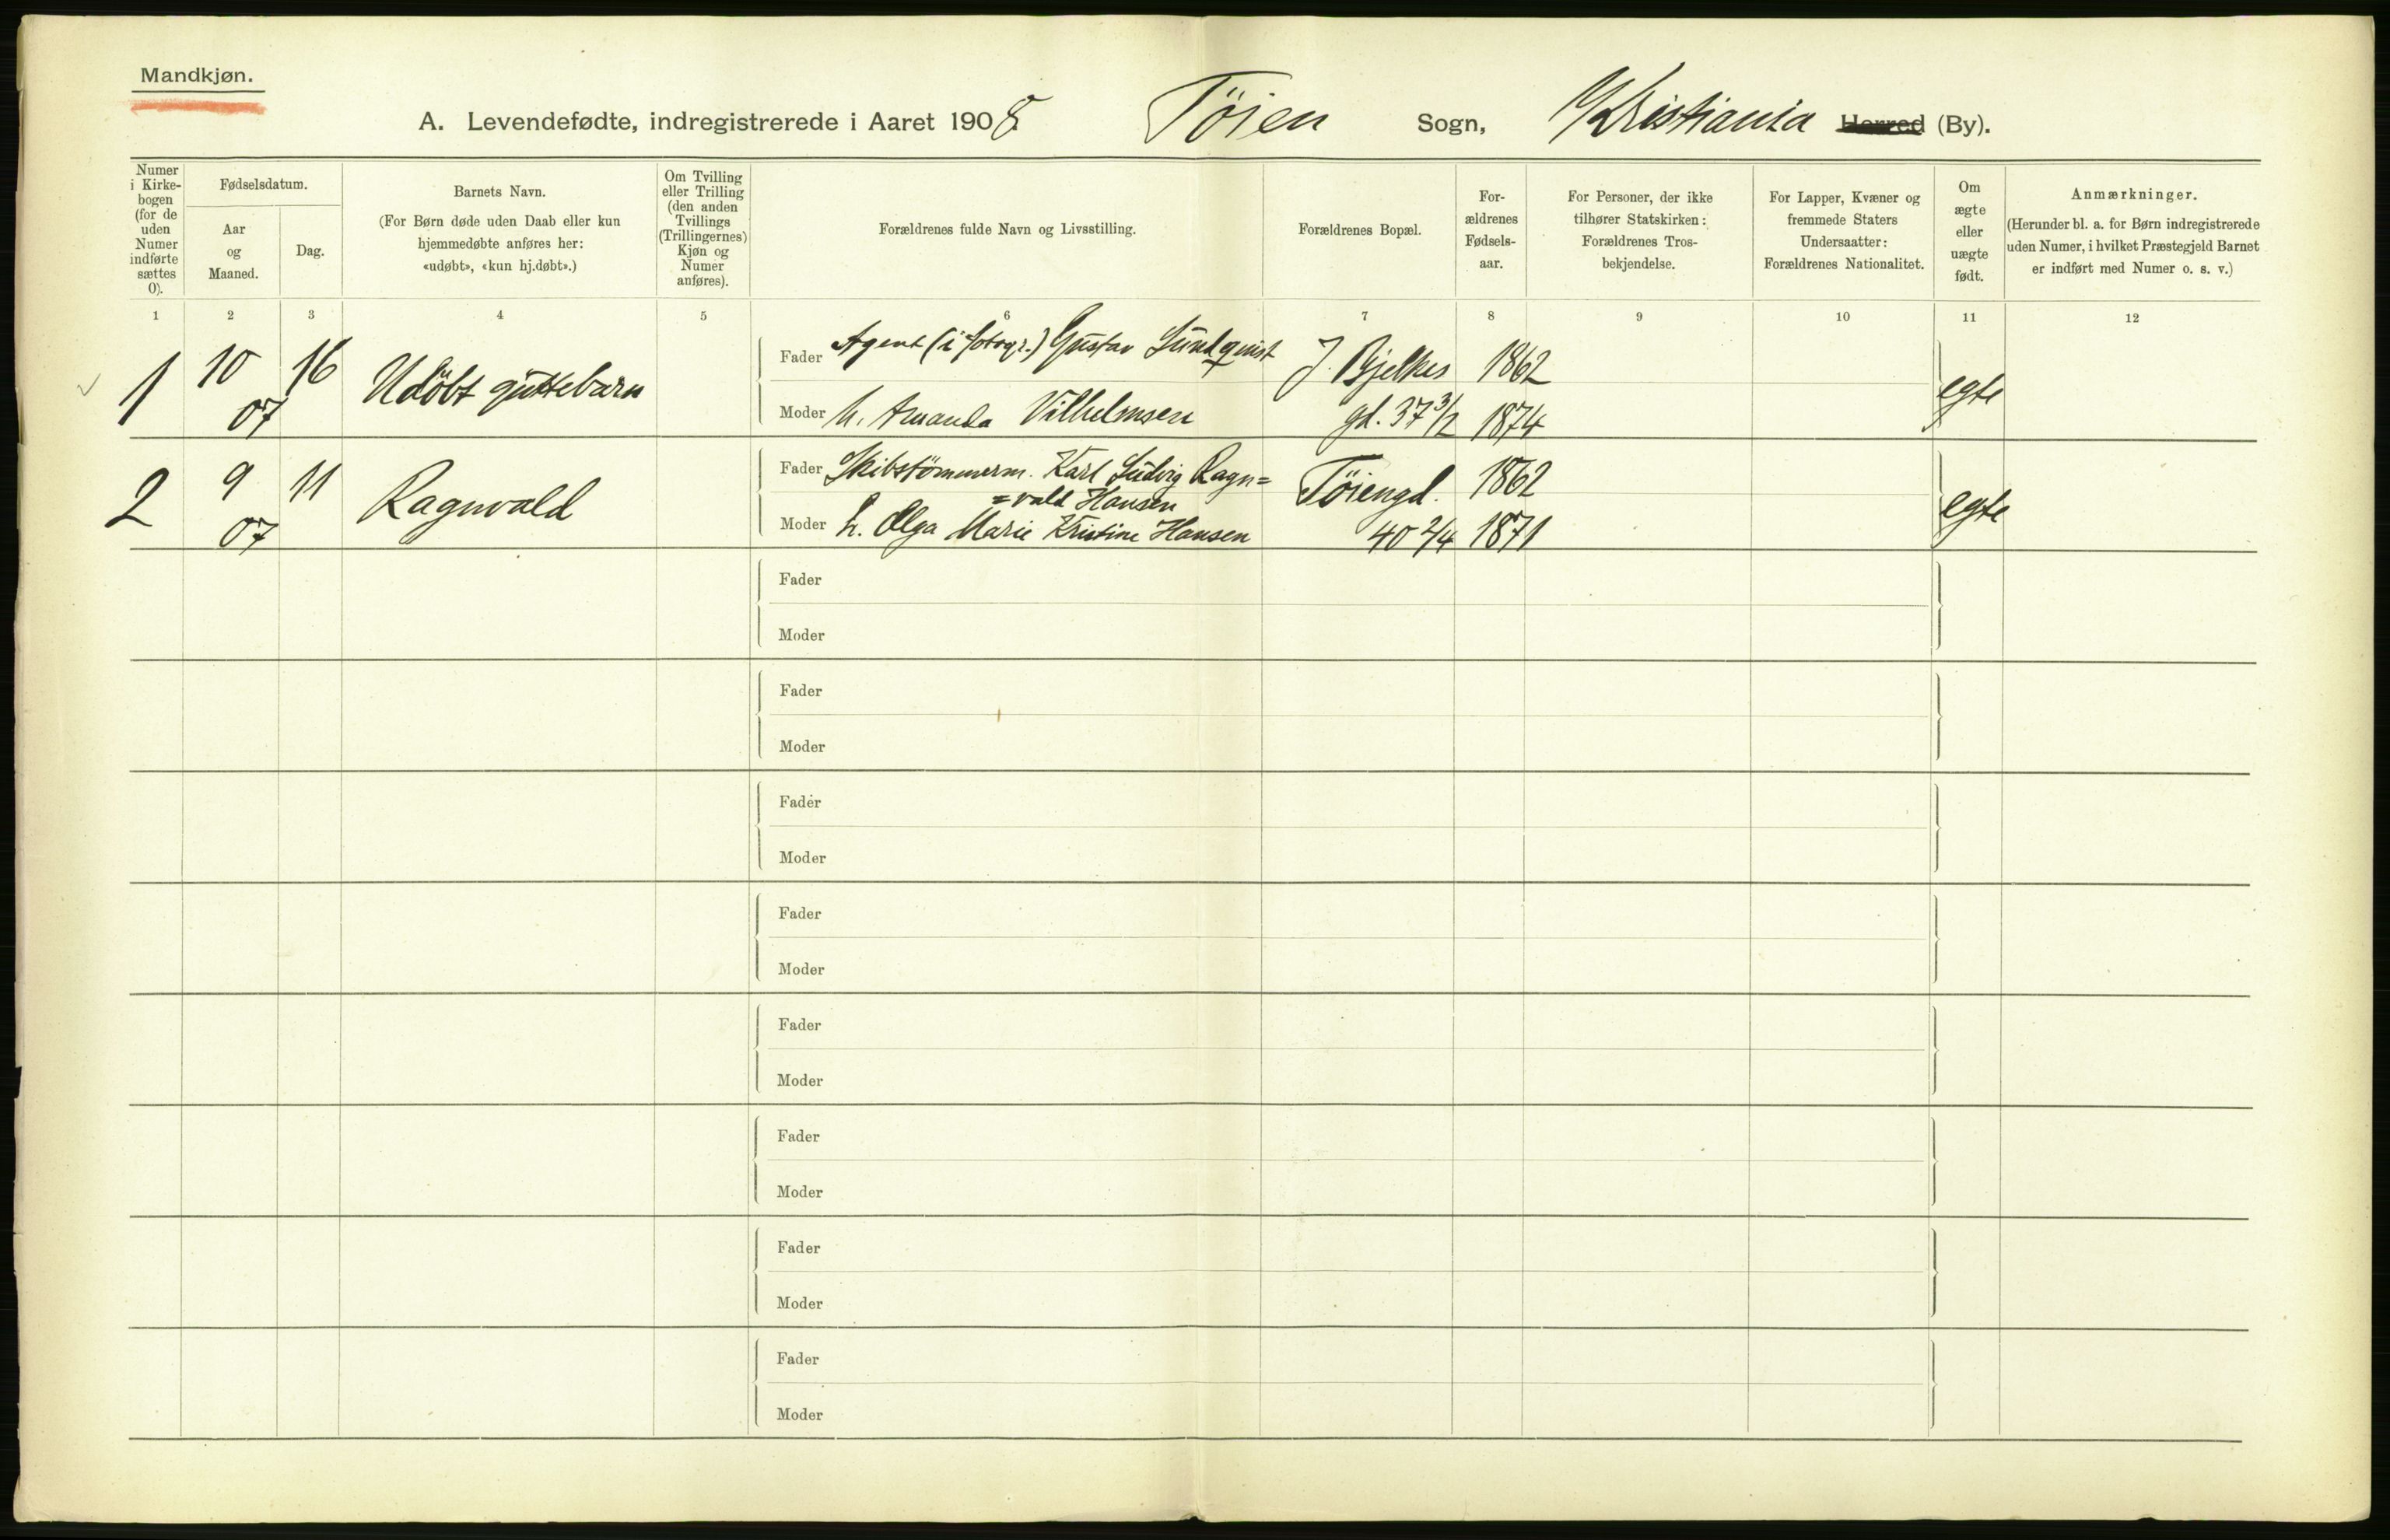 Mandkjøn.
A. Levendefødte, indregistrerede i Aaret 1908. Töien Sogn, Kristiania Herred (By).
Numer i Kirke-bogen (for de uden Numer indførte sættes 0).
Fødselsdatum.
Aar og Maaned.
Dag.
Barnets Navn.
(For Børn døde uden Daab eller kun hjemmedøbte anføres her: «udøbt», «kun hj.døbt».)
Om Tvilling eller Trilling (den anden Tvillings (Trillingernes) Kjøn og Numer anføres).
Forældrenes fulde Navn og Livsstilling.
Forældrenes Bopæl.
For-ældrenes Fødsels-aar.
For Personer, der ikke tilhører Statskirken: Forældrenes Tros-bekjendelse.
For Lapper, Kvæner og fremmede Staters Undersaatter: Forældrenes Nationalitet.
Om ægte eller uægte født.
Anmærkninger.
(Herunder bl. a. for Børn indregistrerede uden Numer, i hvilket Præstegjeld Barnet er indført med Numer o. s. v.)
1 2 3 4 5 6 7 8 9 10 11 12
1 10 07 16 Udöbt guttebarn
Fader Agent (i fotogr.) Gustav Lundquist J. Bjelkes 1862
Moder h. Amanda Vilhelmsen gd. 37 3/2 1874
egte
2 9 07 11 Ragnvald
Fader Skibstömmerm. Karl Ludvig Ragn=
=vald Hansen Töiengd. 1862
Moder h. Olga Marie Kristine Hansen 40 2/4 1871
egte
Fader
Moder
Fader
Moder
Fader
Moder
Fader
Moder
Fader
Moder
Fader
Moder
Fader
Moder
Fader
Moder